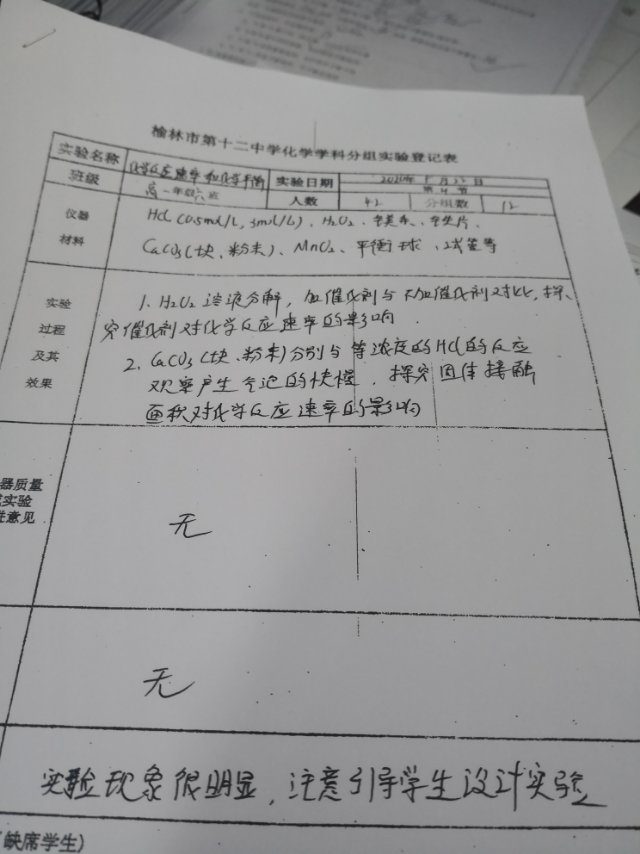 榆林市第十二中学化学学科分组实验登记表
实验名称 化学反应速率和化学平衡 实验日期
第4节
班级 高一年级六班 人数 42 分组数 12
仪器 HCl (0.5mol/L, 3mol/L)、H₂O₂、
材料 CaCO₃(块、粉末)、MnO₂、平衡球、试管等
实验 1. H₂O₂溶液分解，加催化剂与不加催化剂对比，探
过程 究催化剂对化学反应速率的影响.
及其 2. CaCO₃(块、粉末)分别与等浓度的HCl的反应
效果 观察产生气泡的快慢，探究固体接触
面积对化学反应速率的影响
器质量
实验
进意见
无
无
实验现象很明显，注意引导学生设计实验
(缺席学生)